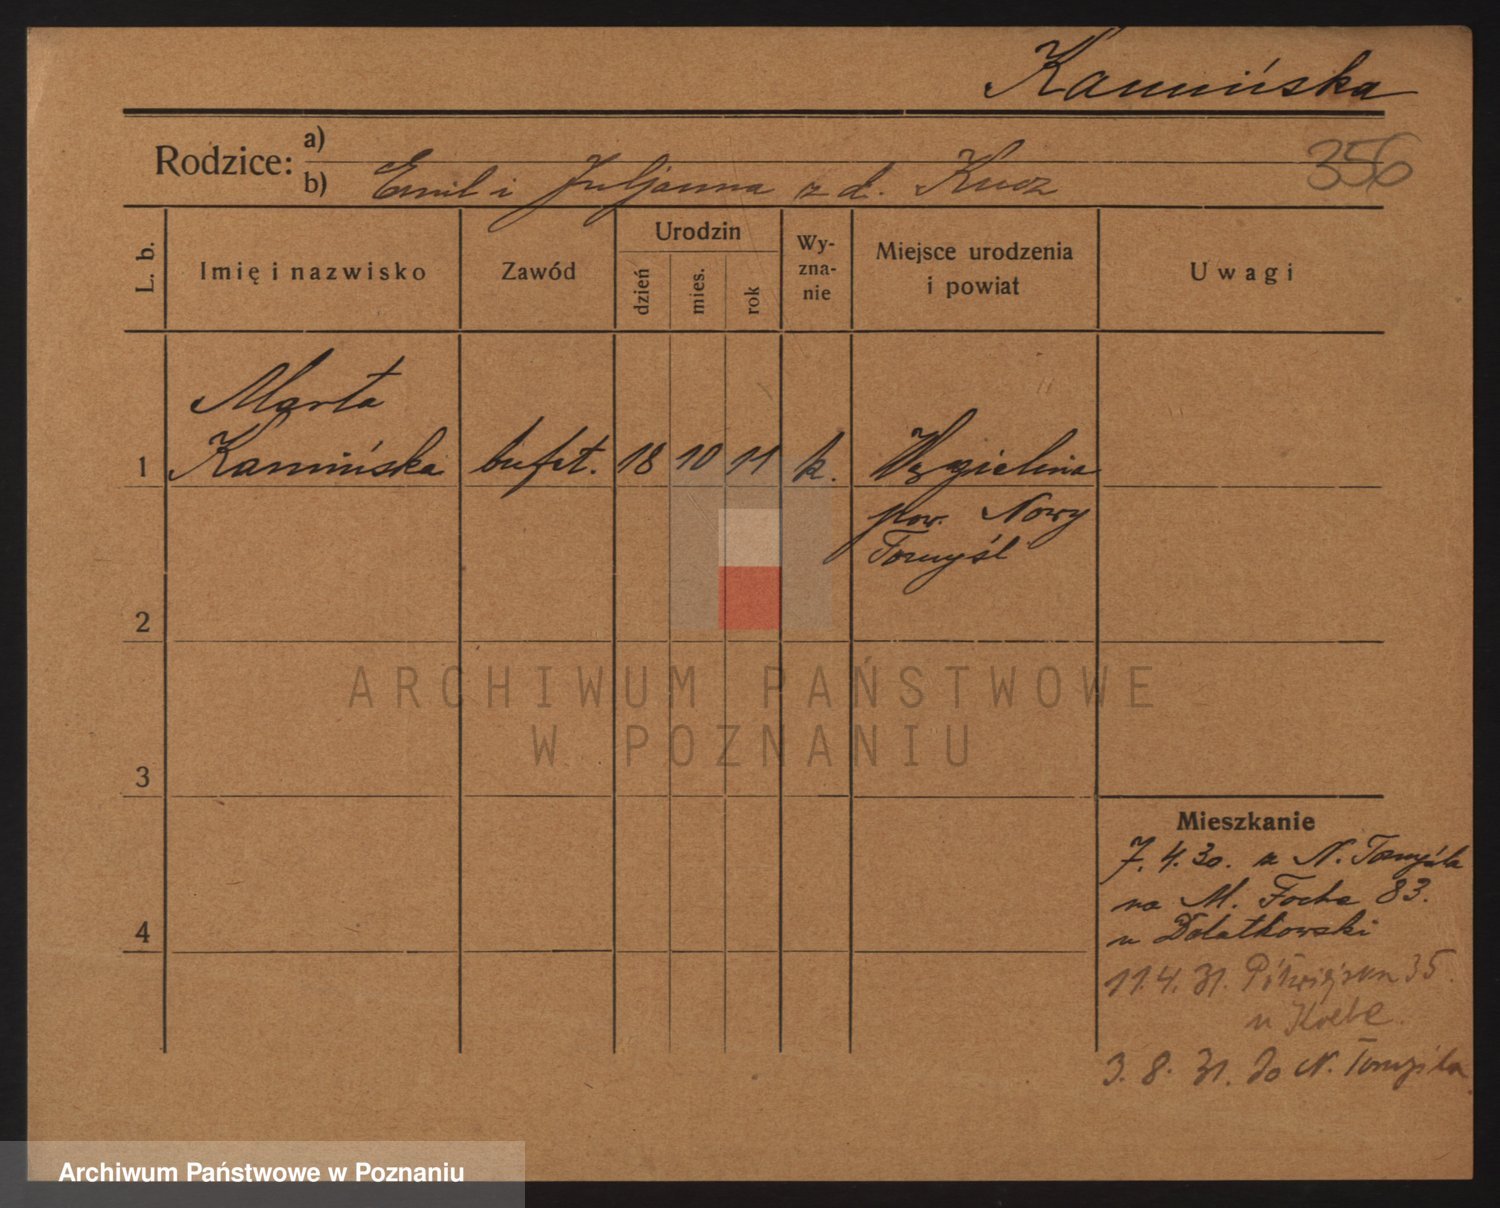 Kamińska
Rodzice: a)
b) Emil i Juljanna z d. Kucz
356
L. b.
Imię i nazwisko
Zawód
Urodzin
dzień
mies.
rok
Wy-
zna-
nie
Miejsce urodzenia
i powiat
Uwagi
Marta
1 Kamińska bufet. 18 10 11 k. Węgielnia
pow. Nowy
Tomyśl
2
ARCHIWUM PAŃSTWOWE
W POZNANIU
3
Mieszkanie
7. 4. 30. z N. Tomyśla
na M. Focha 83.
u Dolatkowski
4
11. 4. 31. Półwiejska 35.
u
3. 8. 31. do N. Tomyśla
Archiwum Państwowe w Poznaniu